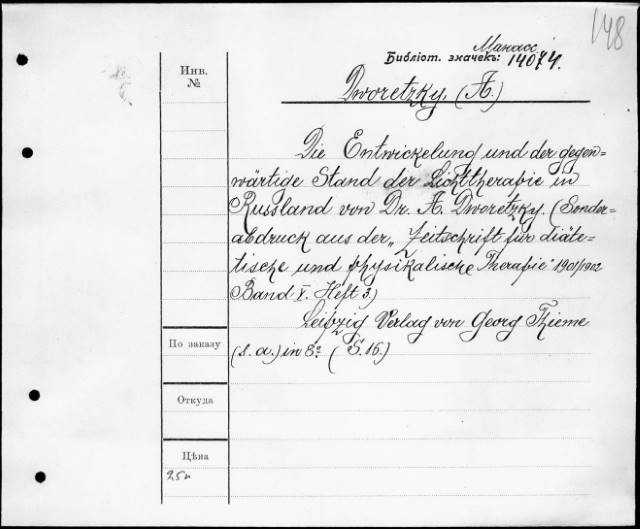 148
Манасс.
Библіот. значекъ: 14074.
Инв.
№
Dworetzky, (A.)
Die Entwickelung und der gegen=
wärtige Stand der Lichttherapie in
Russland von Dr. A. Dworetzky. (Sonder=
abdruck aus der „Zeitschrift für diäte=
tische und physikalische Therapie" 1901/1902
Band V. Heft 3)
Leipzig Verlag von Georg Thieme
По заказу
(s. a.) in 8º (S. 16.)
Откуда
Цѣна
25к